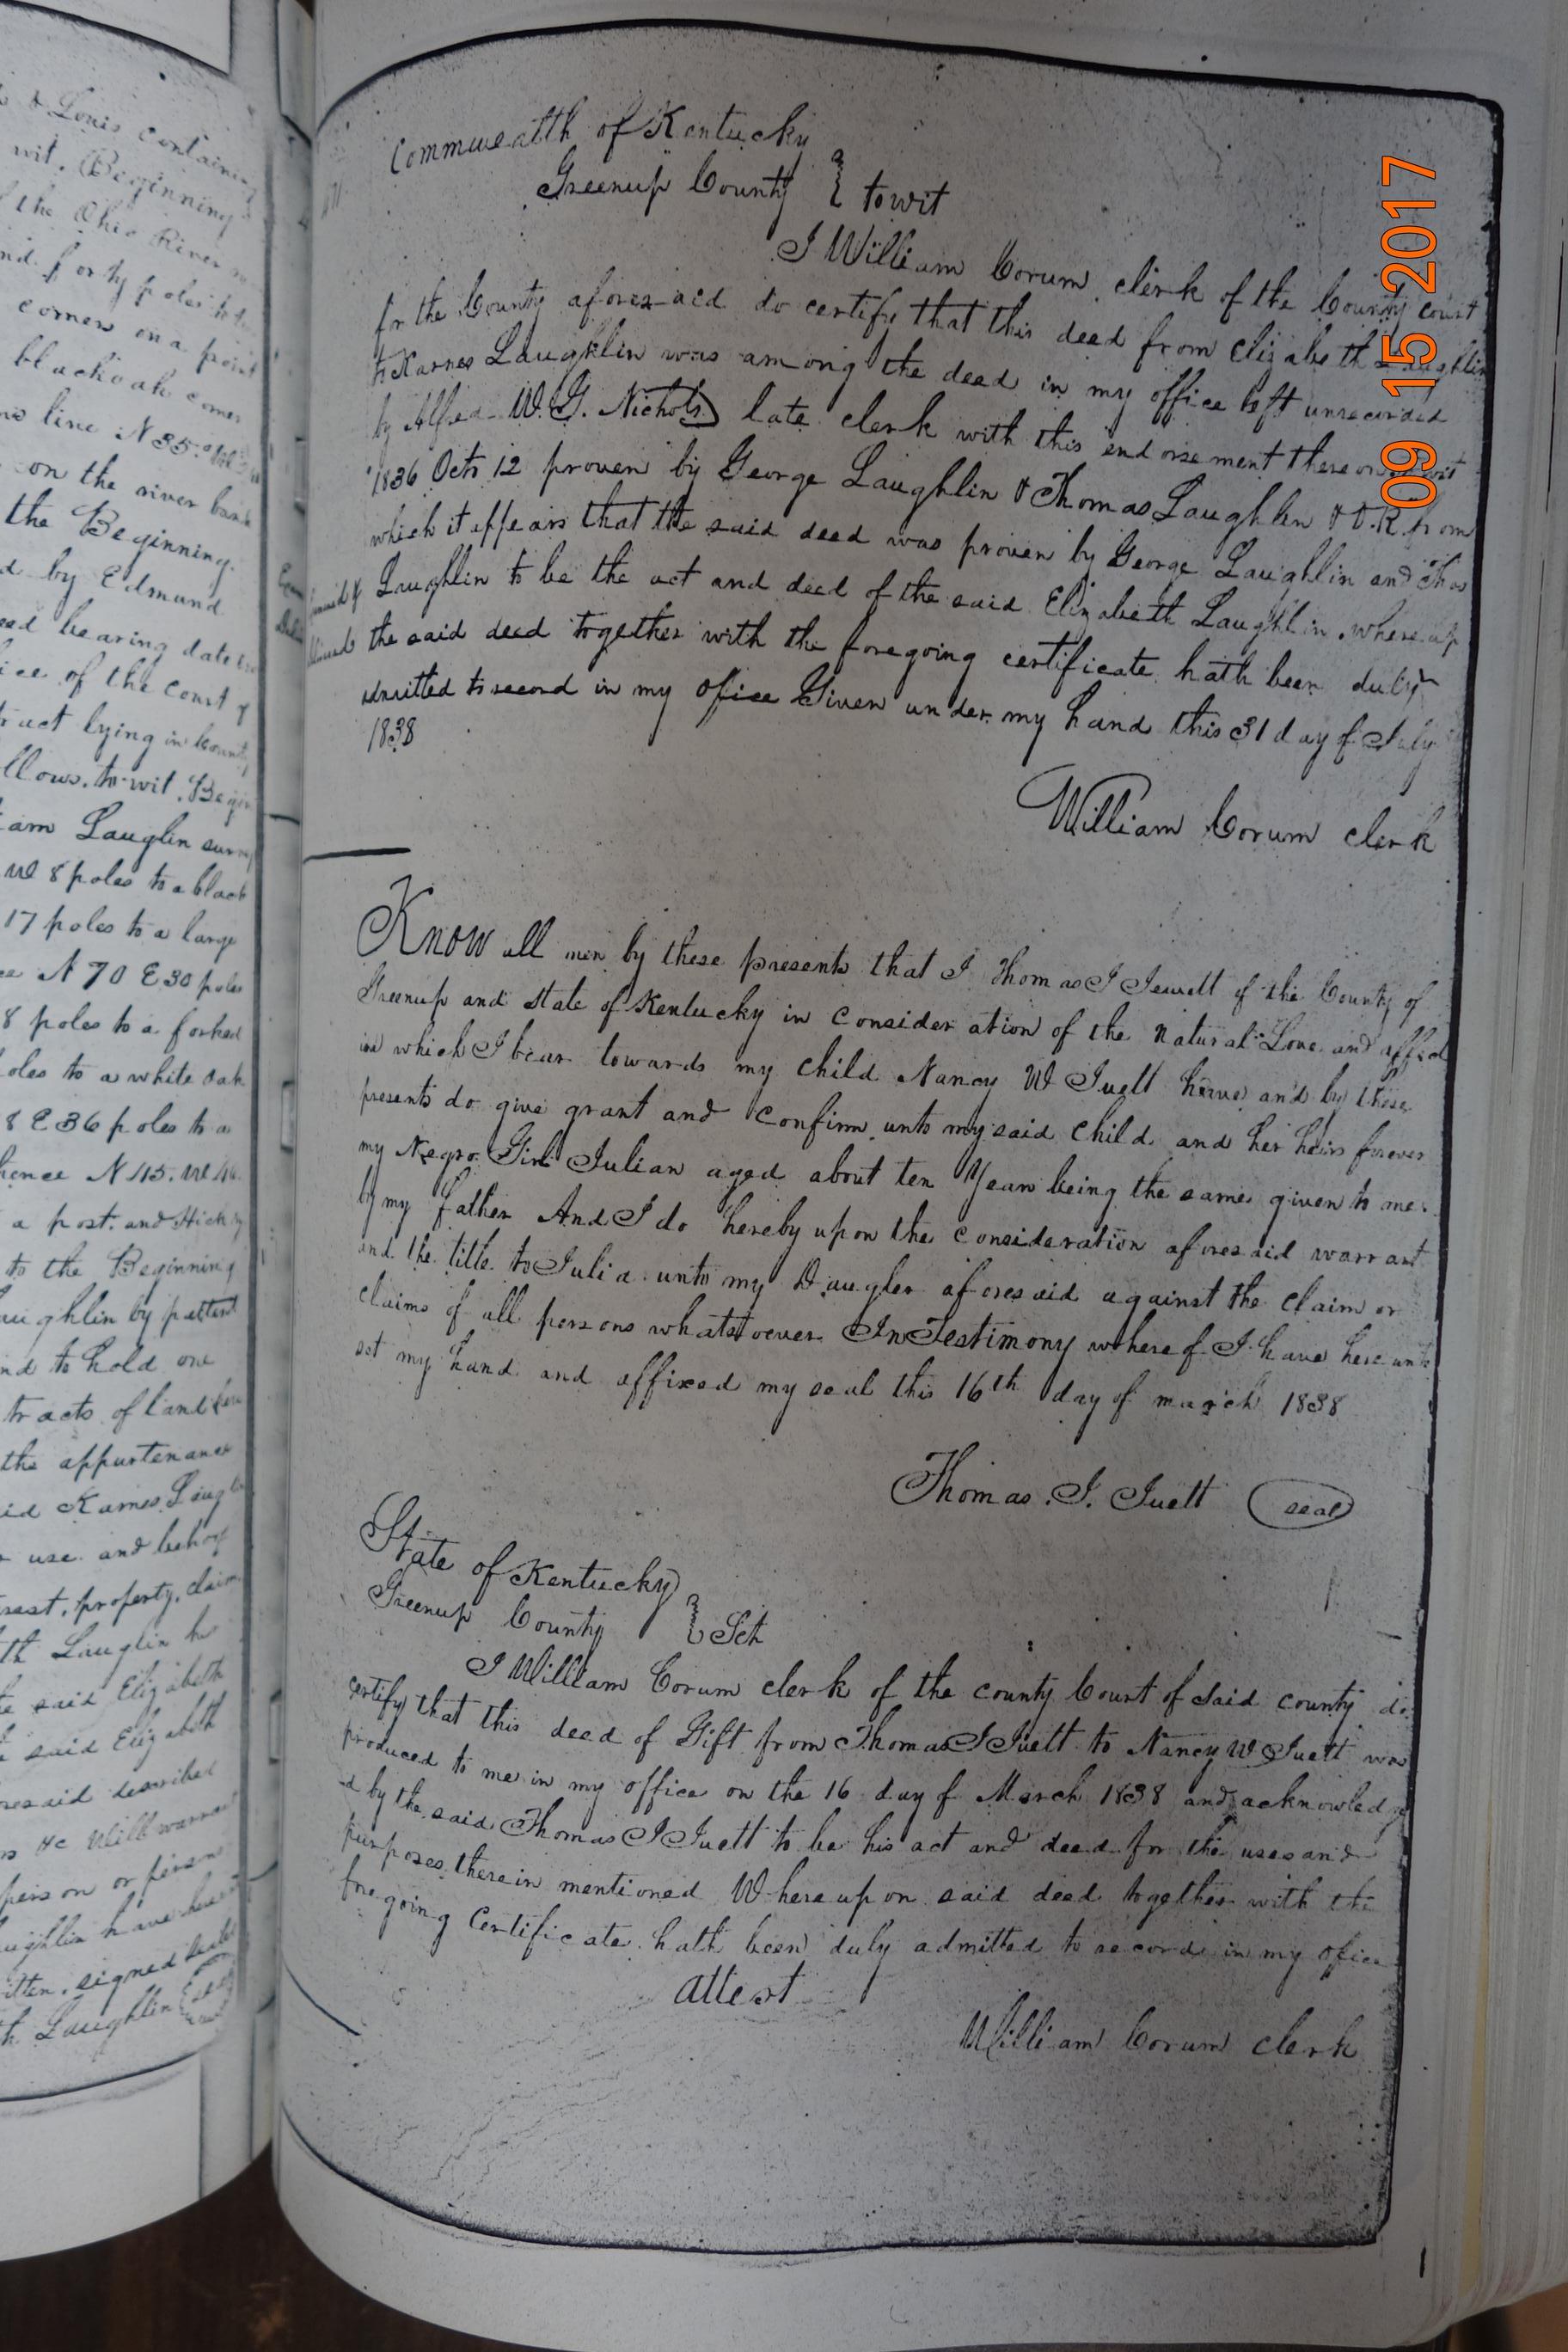 & Louis containing
wit. Beginning
the Ohio River
and forty poles to
corner on a point
blackoak corner
line N 35°
on the river bank
the Beginning.
d by Edmund
bearing date
ice of the Court of
tract lying in County
llows, to-wit. Begin
am Lauglin
W 8 poles to a black
17 poles to a large
N 70 E 30 poles
8 poles to a forked
oles to a white oak
8 E 36 poles to a
hence N 45. W
a post. and Hick
to the Beginning
aughlin by pattent
nd to hold one
tracts of land
the appurtenance
id Karnes Laug
use and behoof
rest, property, claim
th Lauglin
said Elizabeth
said Elizabeth
resaid described
Will warrant
person or person
aughlin have
itten. signed
h Laughlin
Commuealth of Kentucky
Greenup County } towit
I William Corum clerk of the County court
for the County aforesaid do certify that this deed from Elizabeth Laughlin
to Karnes Laughlin was among the deed in my office left unrecorded
by Alfred W. G. Nichols late clerk with this endorsement thereon towit
"1836 Octr 12 proven by George Laughlin & Thomas Laughlin & O.R. from
which it appears that the said deed was proven by George Laughlin and Thos
Laughlin to be the act and deed of the said Elizabeth Laughlin. whereup
the said deed together with the foregoing certificate hath been duly
admitted to record in my ofice Given under my hand this 31 day of July
1838
William Corum clerk
Know all men by these presents that I Thomas J Jewett of the County of
Greenup and state of Kentucky in consideration of the natural Love and affect
ion which I bear towards my child Nancy W Juett have and by these
presents do give grant and confirm unto my said child and her heirs forever
my Negro Girl Julian aged about ten Years being the same given to me
by my father And I do hereby upon the consideration aforesaid warrant
and the title to Julia unto my Daugter aforesaid against the claim or
claims of all persons whatsoever In Testimony whereof I have hereunto
set my hand and affixed my seal this 16th day of march 1838
Thomas. J. Juett (seal)
State of Kentucky
Greenup County } Sct
I William Corum clerk of the county Court of said county do
certify that this deed of Gift from Thomas J Juett to Nancy W Juett was
produced to me in my office on the 16 day of March 1838 and acknowledge
d by the said Thomas J Juett to be his act and deed for the uses and
purposes therein mentioned Whereupon said deed together with the
foregoing Certificate hath been duly admitted to record in my ofice
attest
William Corum clerk
09 15 2017